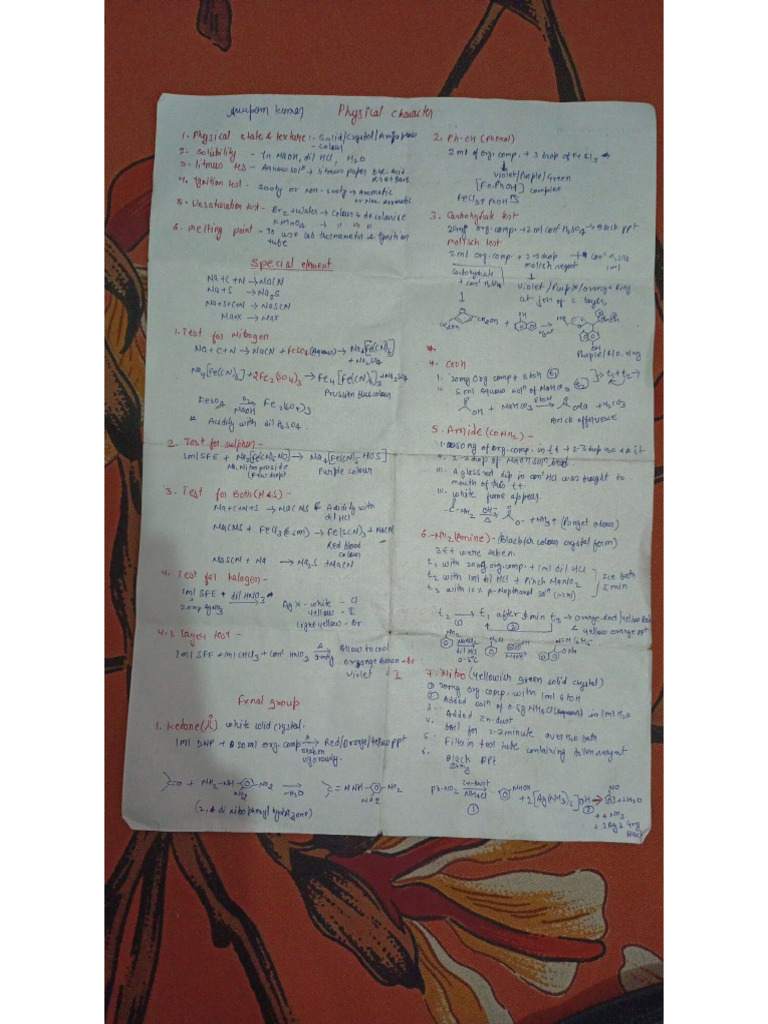 Physical character
1. Physical state & texture :- Solid/crystal/Amorphous
- colour
2. Solubility - In NaOH, dil HCl, H2O
3. Litmus tes - Aqueous soln → Litmus paper
4. Ignition test - Sooty or Non-sooty → Aromatic
or Non-Aromatic
5. Unsaturation test - Br2 + Water → colour & de colourise
KMnO4 → " " "
6. Melting point - To use lab thermometer & Ignition
tube
Special element
Na+C+N → NaCN
Na+S → Na2S
Na+S+C+N → NaSCN
Na+X → NaX
1. Test for Nitrogen
Na+C+N → NaCN + FeSO4 (Aqueous) → Na4[Fe(CN)6]
+ Na2SO4
Na4[Fe(CN)6] + 2Fe2(SO4)3 → Fe4[Fe(CN)6]3 + Na2SO4
Prussian blue colour
FeSO4 Δ NaOH Fe2(SO4)3
* Acidify with dil H2SO4.
2. Test for sulphur -
1ml SFE + Na2[Fe(CN)5NO] → Na4[Fe(CN)5NOS]
Na. Nitroprusside
(Few drop)
Purple colour
3. Test for Both (N & S) -
Na+C+N+S → NaCNS & Acidity with
dil HCl
NaCNS + FeCl3 (2.5ml) → Fe(SCN)3 + NaCl
Red Blood
colour
NaSCN + Na → Na2S + NaCN
4. Test for halogen -
1ml SFE + dil HNO3
20mg AgNO3
AgX - white - Cl
yellow - I
Light yellow - Br
4.2 Layer test -
1ml SFE + 1ml CHCl3 + conc HNO3 Δ Allow to cool
orange brown - Br
violet I
Fxnal group
1. Ketone white solid crystal.
1ml DNP + 20ml org. comp. → Red/orange/yellow ppt
shaken
vigorously.
=O + NH2-NH- -NO2 → -H2O =N NH- -NO2
NO2 NO2
(2,4 di nitrophenyl hydrazone)
2. Ph-OH (Phenol)
2ml of org. comp. + 3 drop of FeCl3 →
Violet/Purple/Green
[Fe-PhOH] complex
FeCl3 + PhOH
3. Carbohydrate test
20mg org. comp + 2ml conc H2SO4 → Black ppt
Molisch test
2ml org. comp + 2-3 drop → + conc H2SO4
molisch regent 1ml
Carbohydrate
+ conc H2SO4
Violet/Purple/orange ring
at jon of 2 layer
Purple/ ring
4. COOH
1. 20mg org comp + EtOH (t1)
2. 5ml Aquous soln of NaHCO3 (t2)
OH + NaHCO3 EtOH → ONa + H2CO3
Brick effervesce
5. Amide (CONH2) -
ii. 2-3 drop of NaOH soln
iii. A glass rod dip in conc HCl was brought to
mouth of this t.t.
iv. white fume appear.
-C-NH2 OH- Δ O- + NH3↑ (Punget odour)
6. -NH2 (Amine) - (Blackish colour crystal form)
3 t.t were taken.
t1 with 20mg org. comp. + 1ml dil HCl
t2 with 1ml dil HCl + Pinch NaNO2
t3 with 10% β-Napthanol soln (1ml)
Ice bath
5 min
t2 → t1 after 5 min t3 → orange-red/yellow
(1) (2)
yellow orange ppt
NH2 NaNO2 dil HCl 0-5°C
7. Nitro (Yellowish green solid crystal)
① 20mg org comp. with 1ml EtOH
② Added soln of 0.5g NH4Cl (Aqueous) in 1ml H2O
Added Zn-dust
5. Boil for 2-3 minute over the bath
6. Filter in test tube containing tollen reagent
Black ppt
Ph-NO2 Zn-dust NH4Cl NHOH + 2[Ag(NH3)2]OH → NO + 2H2O
① ②
+ 4 NH3
+ 2Ag↓